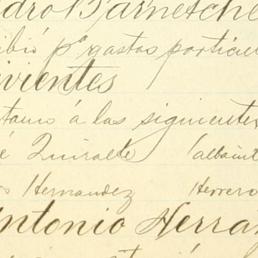 dro Barnetche
ibió pa gastos particu
vivientes
tamo á las siguientes
é Quiralte (albañil
os Hernandez Herrero
Antonio Herra